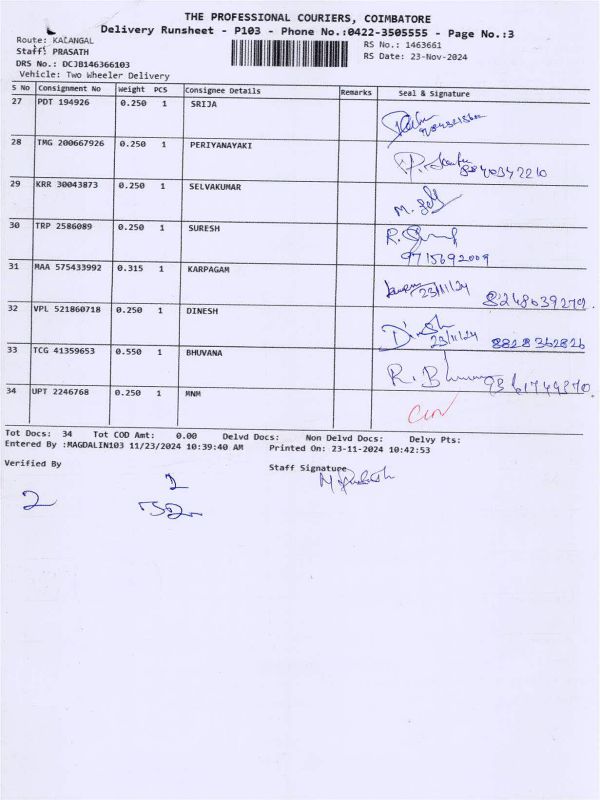 THE PROFESSIONAL COURIERS, COIMBATORE
Delivery Runsheet - P103 - Phone No.:0422-3505555 - Page No.:3
Route: KALANGAL
RS No.: 1463661
Staff: PRASATH
RS Date: 23-Nov-2024
DRS No.: DCJB146366103
Vehicle: Two Wheeler Delivery
S No Consignment No Weight PCS Consignee Details Remarks Seal & Signature
27 PDT 194926 0.250 1 SRIJA
28 TMG 200667926 0.250 1 PERIYANAYAKI
8840342210
29 KRR 30043873 0.250 1 SELVAKUMAR
M. Sel
30 TRP 2586089 0.250 1 SURESH
9715692009
31 MAA 575433992 0.315 1 KARPAGAM
23/11/24 8248639279.
32 VPL 521860718 0.250 1 DINESH
Dinesh 23/11/24 8828362826
33 TCG 41359653 0.550 1 BHUVANA
R. Bhuvana 9361749370.
34 UPT 2246768 0.250 1 MNM
Tot Docs: 34 Tot COD Amt: 0.00 Delvd Docs: Non Delvd Docs: Delvy Pts:
Entered By :MAGDALIN103 11/23/2024 10:39:40 AM Printed On: 23-11-2024 10:42:53
Verified By Staff Signature
2